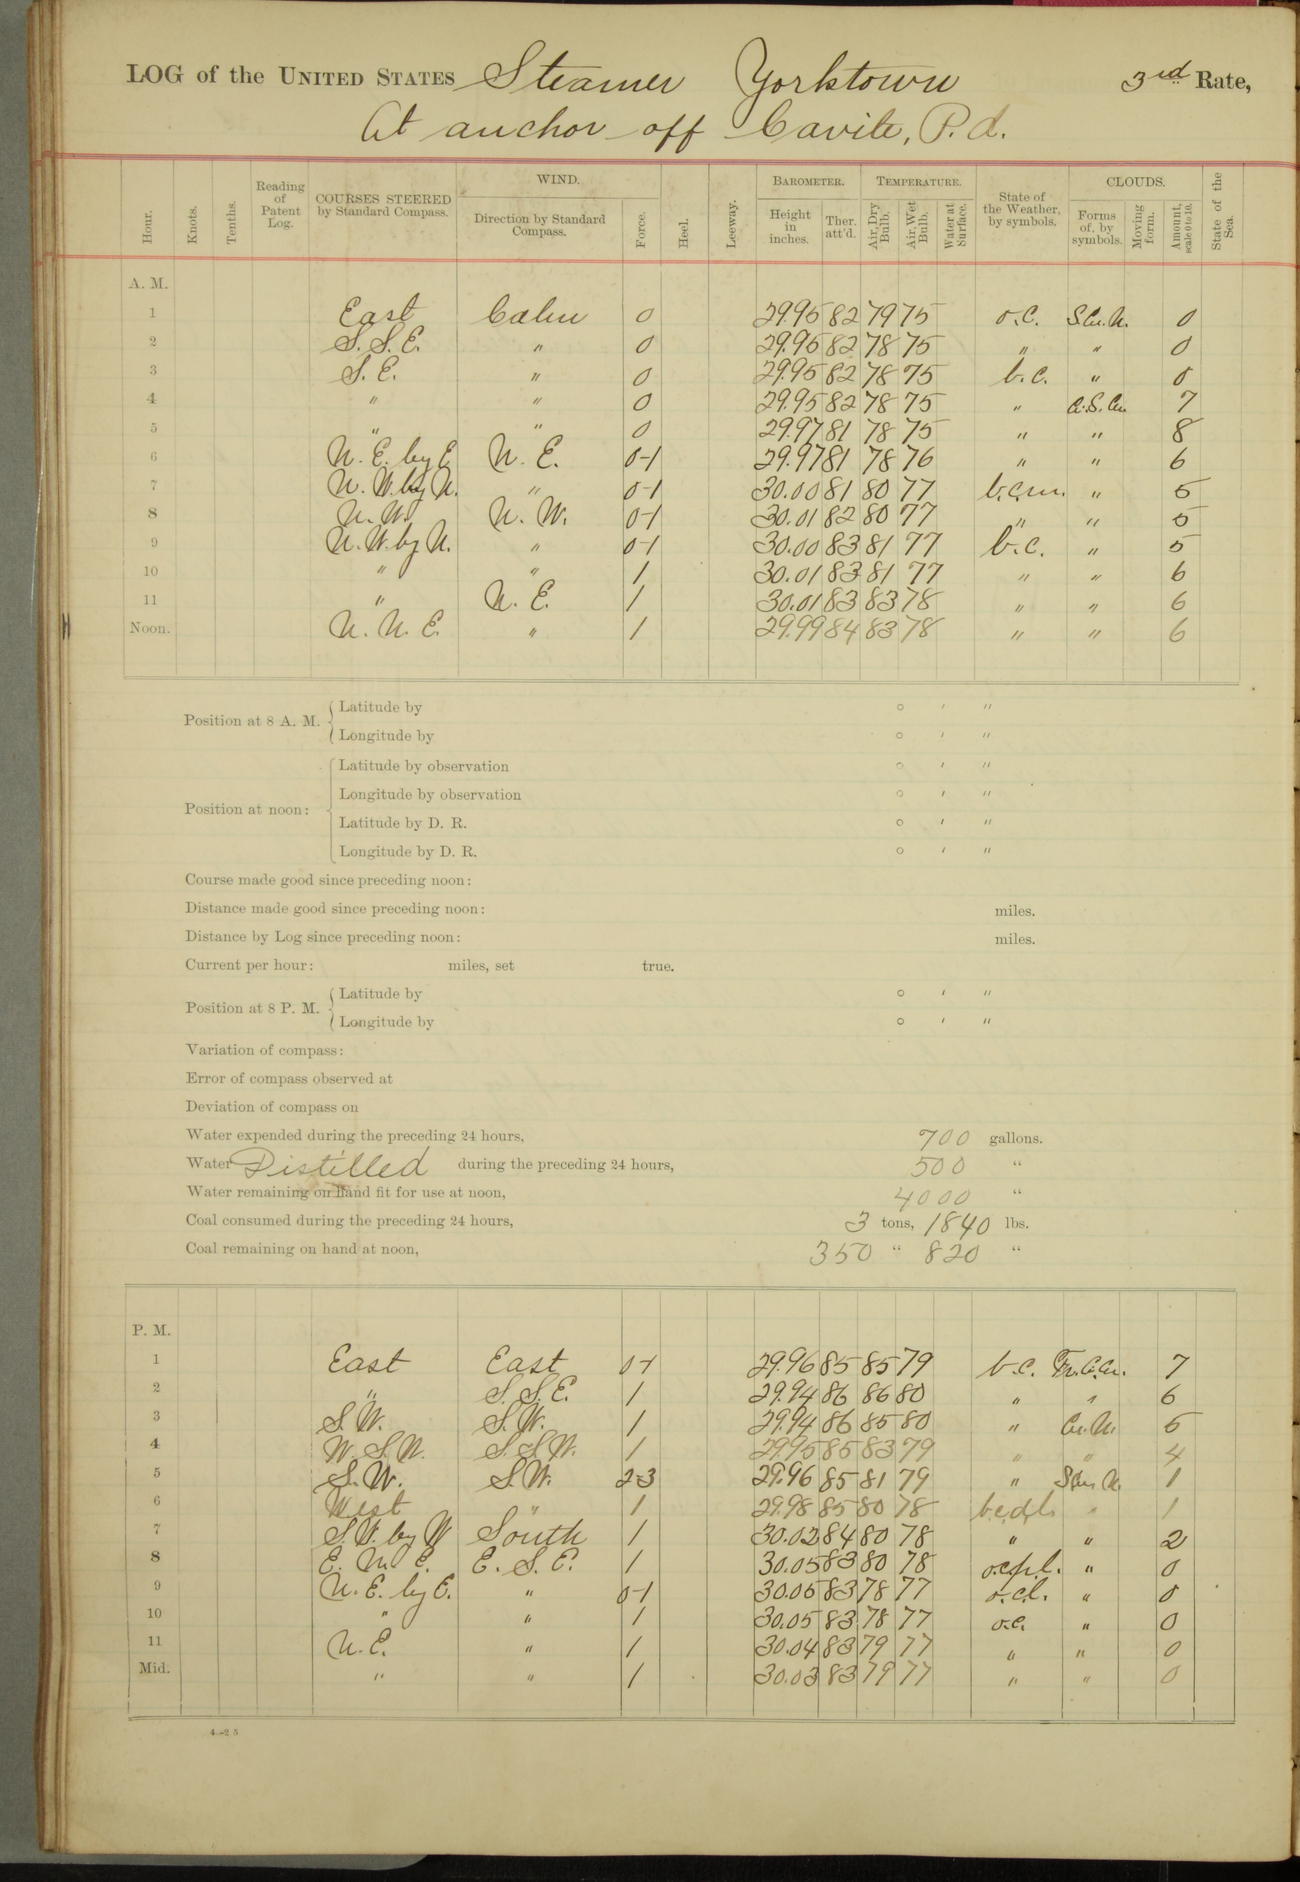 LOG of the UNITED STATES Steamer Yorktown 3rd Rate,
At anchor off Cavite, P.I.
Hour. Knots. Tenths. Reading of Patent Log. COURSES STEERED by Standard Compass. WIND. Direction by Standard Compass. Force. Heel. Leeway. BAROMETER. Height in inches. Ther. att'd. TEMPERATURE. Air, Dry Bulb. Air, Wet Bulb. Water at Surface. State of the Weather, by symbols. CLOUDS. Forms of, by symbols. Moving form. Amount, scale 0 to 10. State of the Sea.
A. M.
1 East Calm 0 29.95 82 79 75 o.c. S.Cu.N. 0
2 S.S.E. " 0 29.95 82 78 75 " " 0
3 S.E. " 0 29.95 82 78 75 b.c. " 0
4 " " 0 29.95 82 78 75 " C.S.Cu. 7
5 " " 0 29.97 81 78 75 " " 8
6 N.E. by E. N.E. 0-1 29.97 81 78 76 " " 6
7 N.W. by N. " 0-1 30.00 81 80 77 b.c.m. " 5
8 N.W. N.W. 0-1 30.01 82 80 77 " " 5
9 N.W. by N. " 0-1 30.00 83 81 77 b.c. " 5
10 " " 1 30.01 83 81 77 " " 6
11 " N.E. 1 30.01 83 83 78 " " 6
Noon. N.N.E. " 1 29.99 84 83 78 " " 6
Position at 8 A. M. { Latitude by ° ' "
Longitude by ° ' "
Position at noon: { Latitude by observation ° ' "
Longitude by observation ° ' "
Latitude by D. R. ° ' "
Longitude by D. R. ° ' "
Course made good since preceding noon:
Distance made good since preceding noon: miles.
Distance by Log since preceding noon: miles.
Current per hour: miles, set true.
Position at 8 P. M. { Latitude by ° ' "
Longitude by ° ' "
Variation of compass:
Error of compass observed at
Deviation of compass on
Water expended during the preceding 24 hours, 700 gallons.
Water Distilled during the preceding 24 hours, 500 "
Water remaining on hand fit for use at noon, 4000 "
Coal consumed during the preceding 24 hours, 3 tons, 1840 lbs.
Coal remaining on hand at noon, 350 " 820 "
P. M.
1 East East 0-1 29.96 85 85 79 b.c. 7
2 " S.S.E. 1 29.94 86 86 80 " " 6
3 S.W. S.W. 1 29.94 86 85 80 " Cu.N. 5
4 W.S.W. S.S.W. 1 29.95 85 83 79 " " 4
5 S.W. S.W. 2-3 29.96 85 81 79 " S.Cu.N. 1
6 West " 1 29.98 85 80 78 " 1
7 S.W. by W South 1 30.02 84 80 78 " " 2
8 E.N.E. E.S.E. 1 30.05 83 80 78 " 0
9 N.E. by E. " 0-1 30.05 83 78 77 o.c.l. " 0
10 " " 1 30.05 83 78 77 o.c. " 0
11 N.E. " 1 30.04 83 79 77 " " 0
Mid. " " 1 30.03 83 79 77 " " 0
4—25